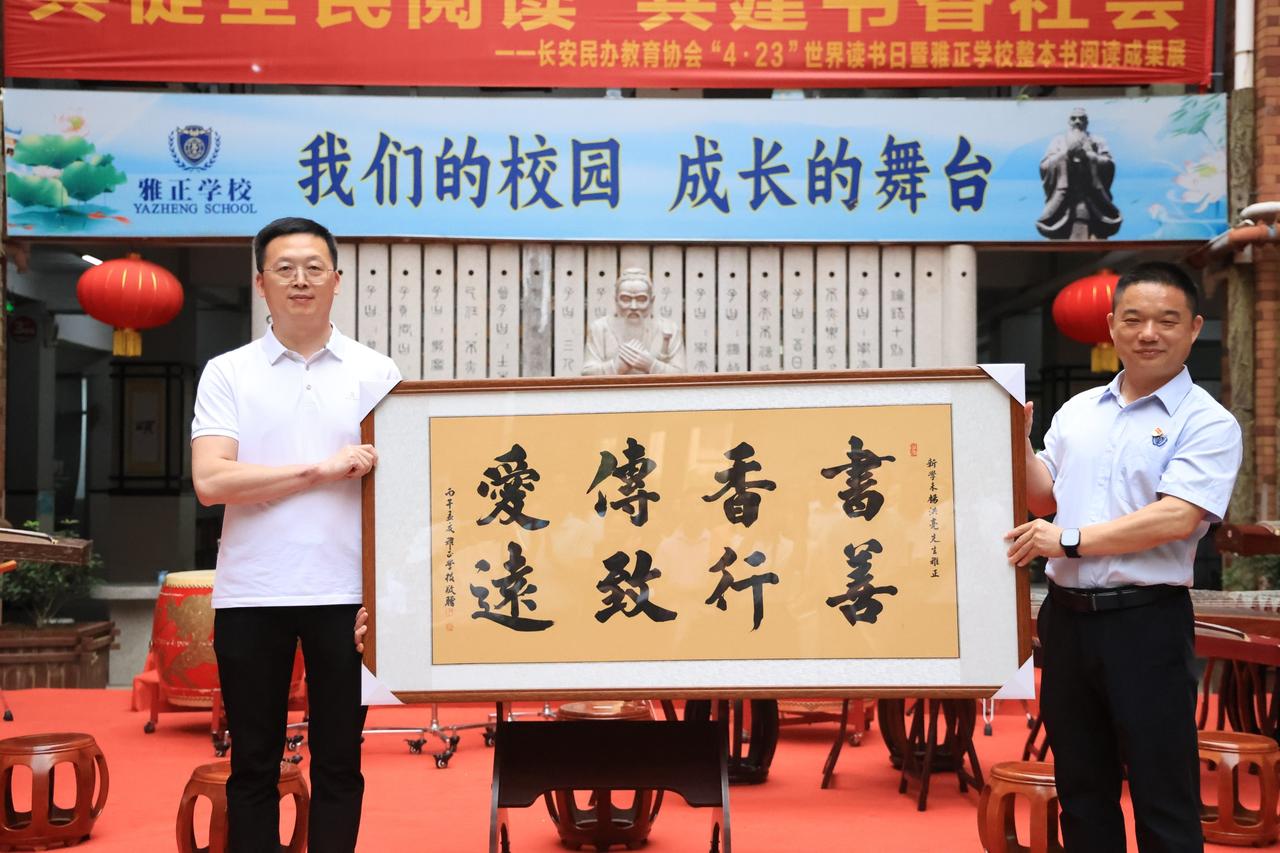 共促全民阅读 共建书香社会
——长安民办教育协会“4·23”世界读书日暨雅正学校整本书阅读成果展
雅正学校
YAZHENG SCHOOL
我们的校园 成长的舞台
論語十則
洪亮先生雅正
書香傳愛
善行致遠
丙午孟夏雅正學校敬贈